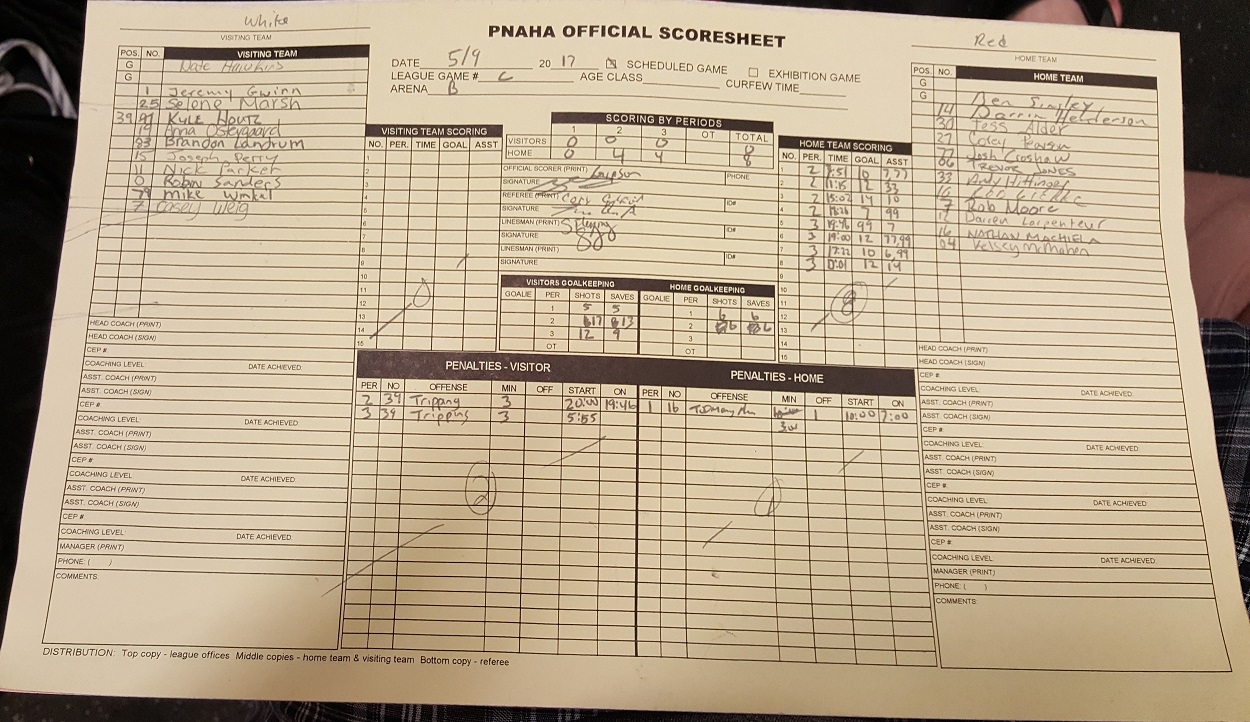 White
VISITING TEAM
PNAHA OFFICIAL SCORESHEET
Red
HOME TEAM
DATE 5/9 20 17 SCHEDULED GAME EXHIBITION GAME
LEAGUE GAME # C AGE CLASS CURFEW TIME
ARENA B
POS. NO. VISITING TEAM
G Nate Hawkins
G
1 Jeremy Gwinn
25 Selone Marsh
39 KYLE HOUTZ
19 Anna
83 Brandon Landrum
15 Joseph Perry
11 Nick Parker
0 Robin Sanders
79 mike Winkal
7 Casey Weig
HEAD COACH (PRINT)
HEAD COACH (SIGN)
CEP #
COACHING LEVEL DATE ACHIEVED
ASST. COACH (PRINT)
ASST. COACH (SIGN)
CEP #
COACHING LEVEL DATE ACHIEVED
ASST. COACH (PRINT)
ASST. COACH (SIGN)
CEP #
COACHING LEVEL DATE ACHIEVED
ASST. COACH (PRINT)
ASST. COACH (SIGN)
CEP #
COACHING LEVEL DATE ACHIEVED
MANAGER (PRINT)
PHONE: ( )
COMMENTS:
VISITING TEAM SCORING
NO. PER. TIME GOAL ASST
1
2
3
4
5
6
7
8
9
10
11
12
13
14
15
0
SCORING BY PERIODS
1 2 3 OT TOTAL
VISITORS 0 0 0 0
HOME 0 4 4 8
OFFICIAL SCORER (PRINT) PHONE
SIGNATURE
REFEREE (PRINT) Cory
SIGNATURE ID#
LINESMAN (PRINT)
SIGNATURE ID#
LINESMAN (PRINT)
SIGNATURE ID#
VISITORS GOALKEEPING HOME GOALKEEPING
GOALIE PER SHOTS SAVES GOALIE PER SHOTS SAVES
1 5 5 1 6 6
2 17 13 2 6 6
3 12 9 3
OT OT
HOME TEAM SCORING
NO. PER. TIME GOAL ASST
1 2 :51 10 7,77
2 2 11:15 12 33
3 2 15:02 14 10
4 2 7 99
5 3 19:46 99 7
6 3 19:00 12 77,99
7 3 17:22 10 6,99
8 3 0:01 12 14
9
10
11
12
13
14
15
8
POS. NO. HOME TEAM
G
G Ben Singley
14 Darrin Helderson
30 Tess Alder
27 Corey
77 Josh Croshaw
66 TREVOR JONES
33 Andy Hittinger
10
7 Rob Moore
12 Darren Carpenteur
16 NATHAN MACHIELA
04 Kelsey McMahen
HEAD COACH (PRINT)
HEAD COACH (SIGN)
CEP #
COACHING LEVEL DATE ACHIEVED
ASST. COACH (PRINT)
ASST. COACH (SIGN)
CEP #
COACHING LEVEL DATE ACHIEVED
ASST. COACH (PRINT)
ASST. COACH (SIGN)
CEP #
COACHING LEVEL DATE ACHIEVED
ASST. COACH (PRINT)
ASST. COACH (SIGN)
CEP #
COACHING LEVEL DATE ACHIEVED
MANAGER (PRINT)
PHONE: ( )
COMMENTS:
PENALTIES - VISITOR
PER NO OFFENSE MIN OFF START ON
2 39 Tripping 3 20:00 19:46
3 39 Tripping 3 5:55
2
PENALTIES - HOME
PER NO OFFENSE MIN OFF START ON
1 16 1 10:00 7:00
1
DISTRIBUTION: Top copy - league offices Middle copies - home team & visiting team Bottom copy - referee